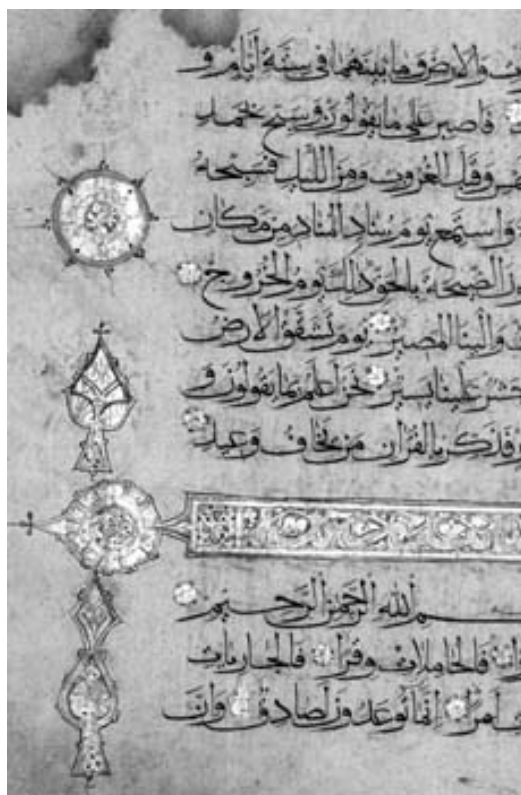 والارض وما بينهما في ستة أيام و
فاصبر على ما يقولون وسبح بحمد
وقبل الغروب ومن الليل فسبحه
واستمع يوم يناد المناد من مكان
الصيحة بالحق ذلك يوم الخروج
والينا المصير يوم تشقق الارض
حشر علينا يسير نحن أعلم بما يقولون و
فذكر بالقرآن من يخاف وعيد
ـسم الله الرحمن الرحيم
فالحاملات وقرا فالجاريات
أمرا إنما توعدون لصادق وإن